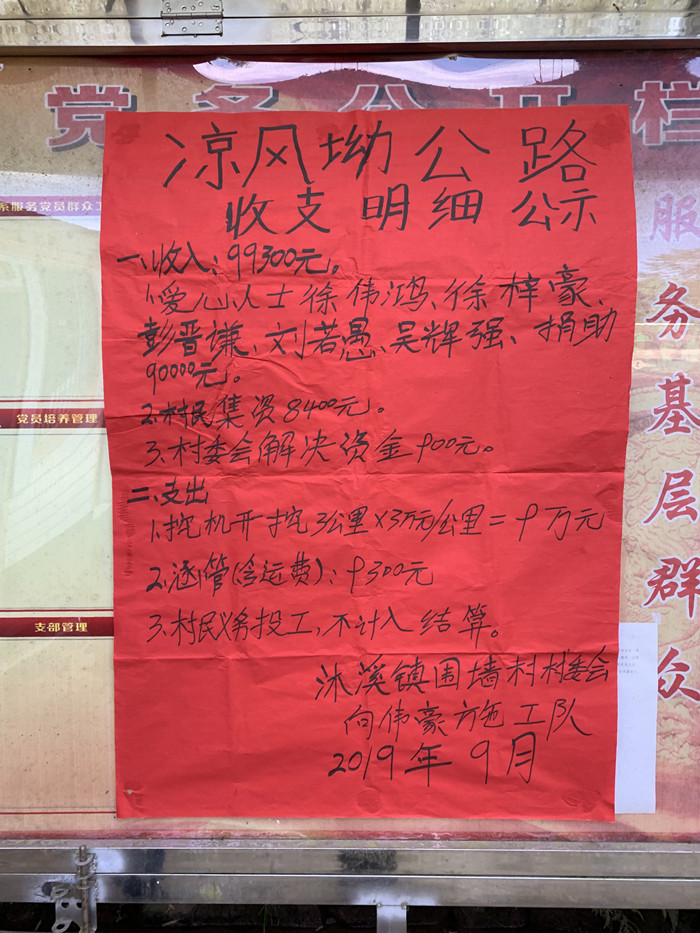 党务公开栏
凉风坳公路
收支明细公示
一、收入:99300元。
1、爱心人士徐伟鸿、徐梓豪、
彭晋谦、刘若愚、吴辉强、捐助
90000元。
2.村民集资8400元。
3.村委会解决资金900元。
二、支出
1.挖机开挖3公里×3万元/公里=9万元
2.涵管(含运费):9300元
3.村民义务投工,不计入结算。
沐溪镇围墙村村委会
向伟豪施工队
2019年9月
系服务党员群众工
党员培养管理
支部管理
服务基层群众